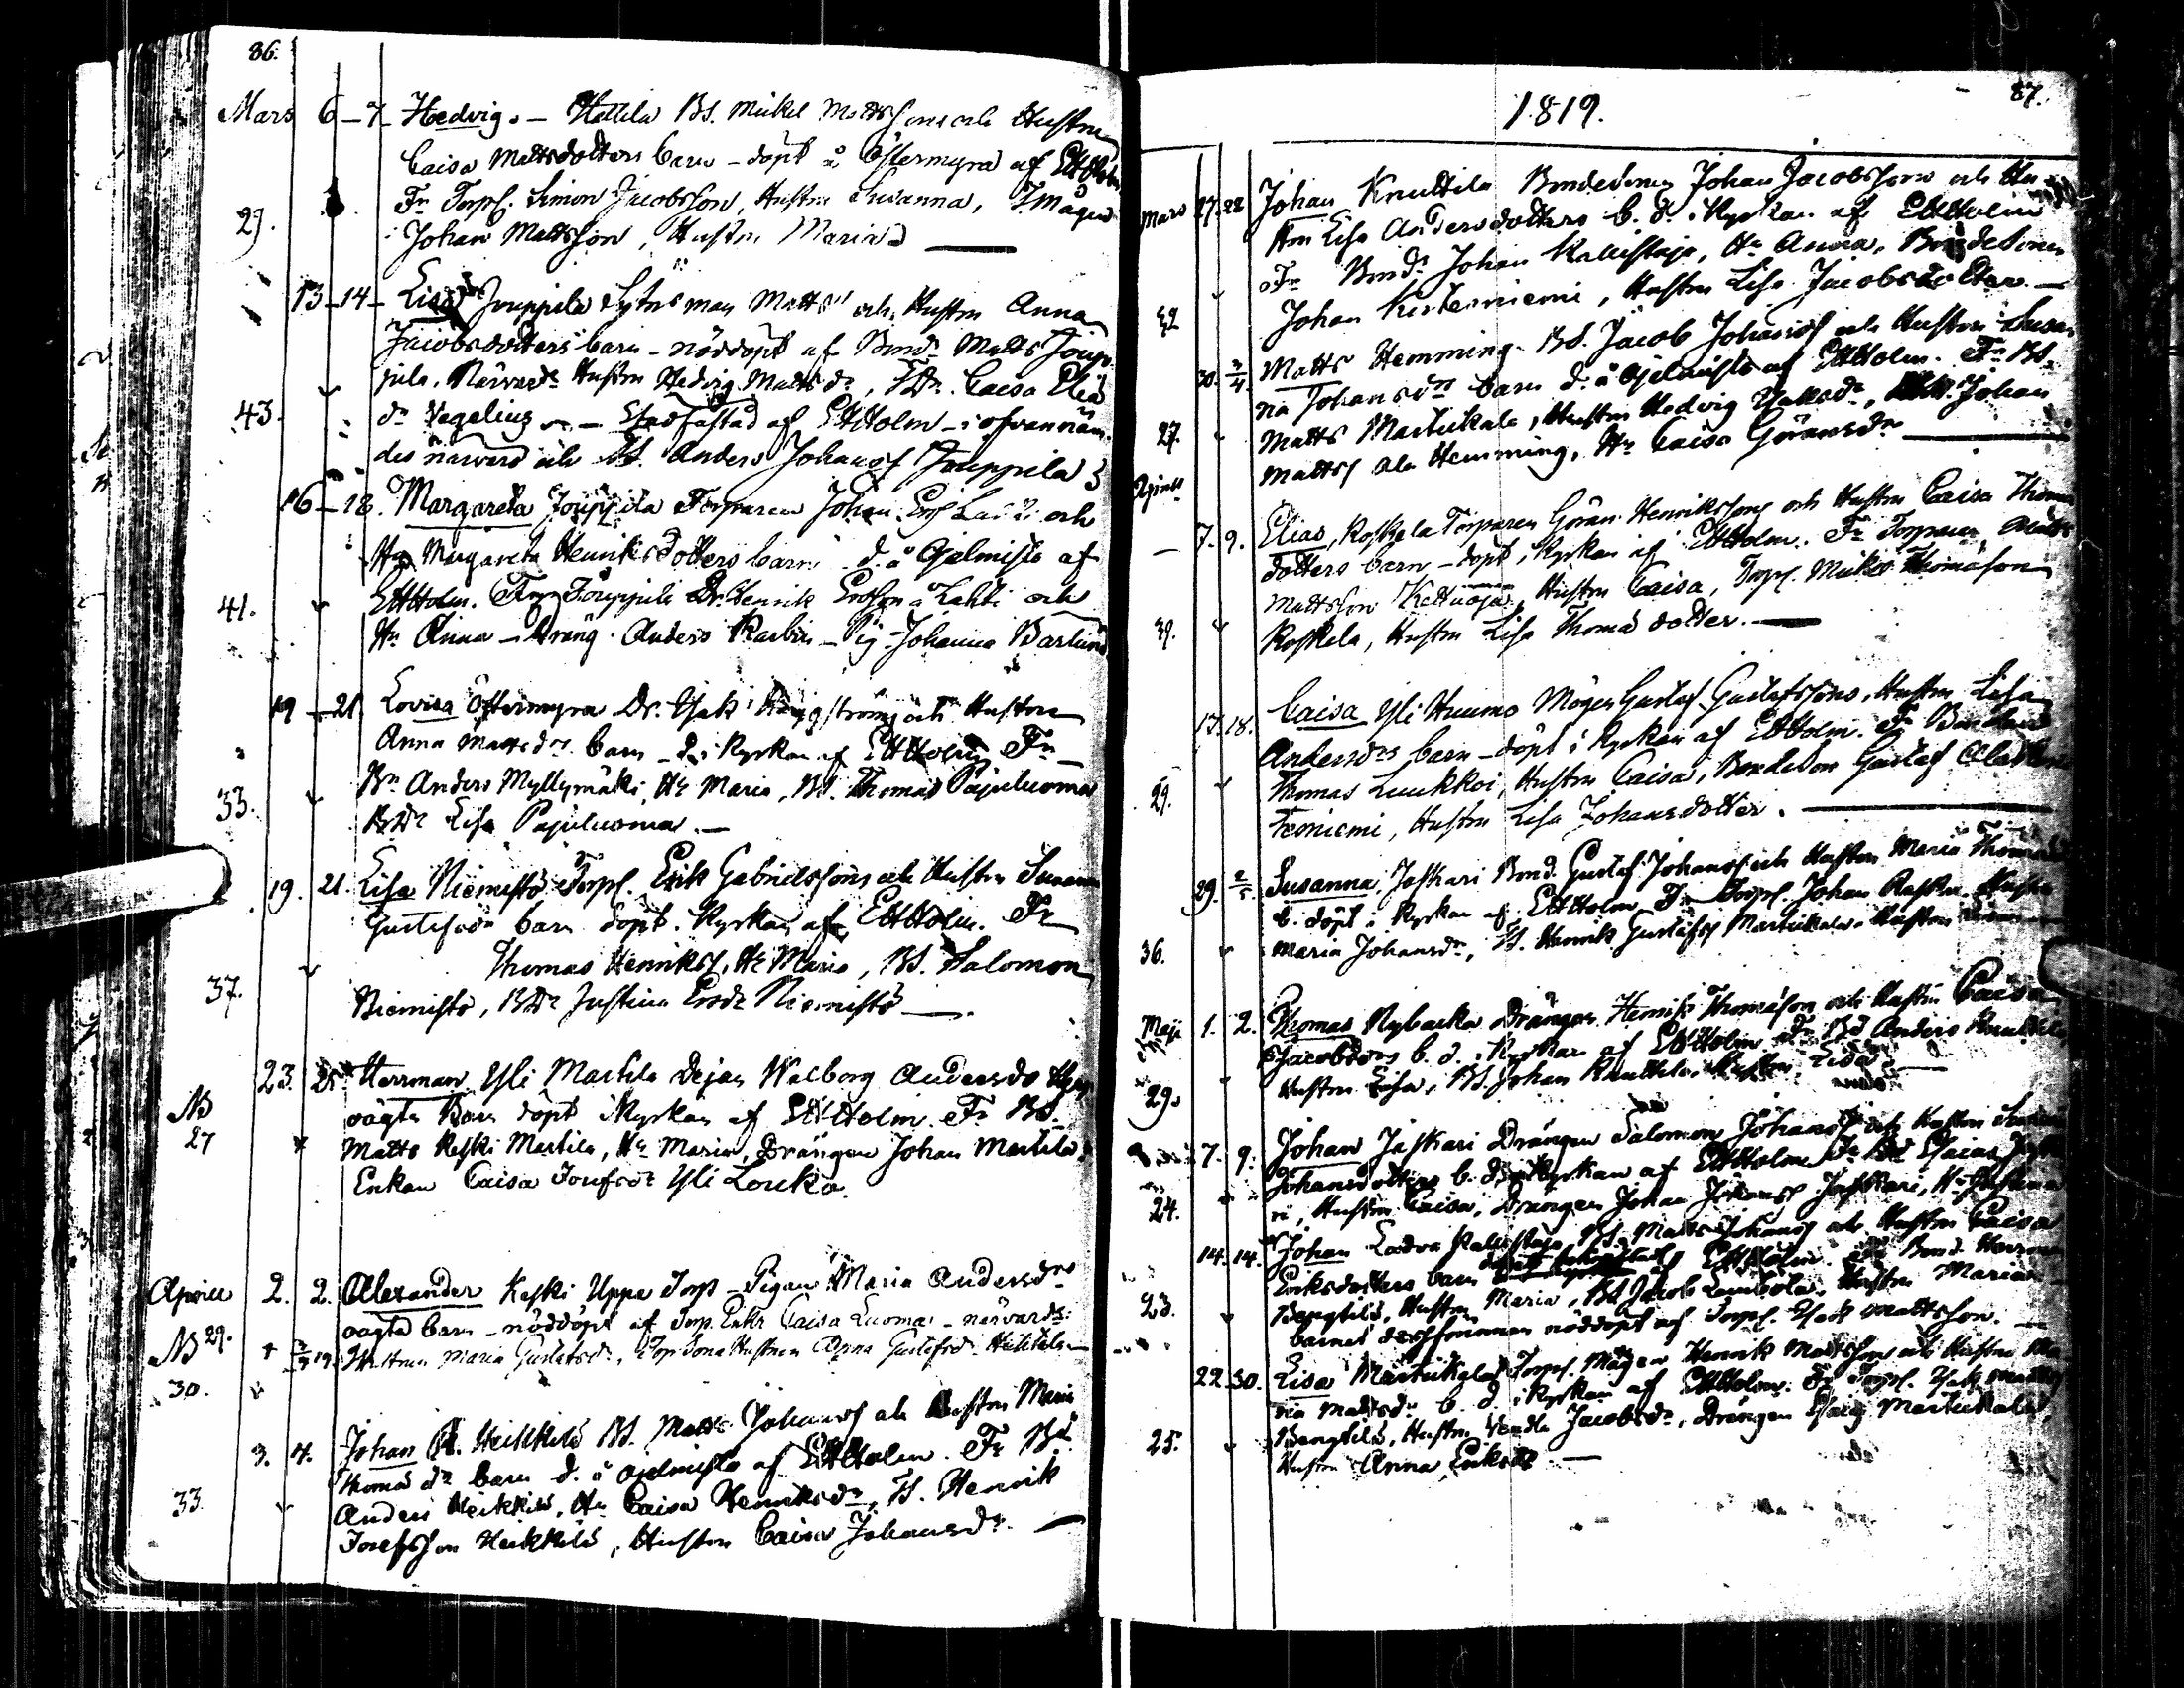 86.
Mars 6-7- Hedvig. - Hallila BS. Mickel Mattssons och Hustru
Caisa Mattsdotters barn - döpt å Östermyra af EHHolm
Fr Torpf. Simon Jacobsson, Hustru Susanna, T.mågen
29. Johan Mattsson, Hustru Maria
13-14- Lisa Jouppila Sytnsman Matts och Hustru Anna
Jacobsdotters barn - nöddöpt af Bond. Matts Joup-
pila. Närvar: Hustru Hedvig Mattsdr, Caisa Elia
43. dr Vegelius - Stadfästad af EHHolm - i ofvannäm-
des närvaro och BS. Anders Johanss Jouppila
16-18. Margareta Jouppila Torparen Johan Lahti och
Hu Margareta Henriksdotters barn d. å Ojelmisto af
41. EHHolm. Jouppila Dr. Henrik Ersson å Lahti och
Hu Anna - Dräng Anders - Pig. Johanna Barlund
19-21 Lovisa Östermyra Dr. Isak Häggström och Hustru
Anna Mattsdrs barn - d. i Kyrkan af EHHolm Fr
33. Bn Anders Myllymäki, Hu Maria, BS. Thomas Pajuluoma
BDr Lisa Pajuluoma. -
19. 21. Lisa Niemistö Torpf. Erik Gabrielssons och Hustru Susanna
Gustafsdr barn döpt i Kyrkan af EHHolm. Fr
Thomas Henrikss, Hu Maria, BS. Salomon
37. Niemistö, BDr Justina Ersdr Niemistö -
23. 25 Herrman Yli Martila Dejan Walborg Andersdr
NB oägta Barn döpt i Kyrkan af EHHolm. Fr BS.
27 Matts Keski Martila, Hu Maria, Drängen Johan Martila
Enkan Caisa Josefsdr Yli Louko.
Aprill 2. 2. Alexander Keski Uppa Torp - Pigan Maria Andersdrs
oägta barn - nöddöpt af Torp. Enka Caisa Luoma - närvar:
NB 29. Hustrun Maria Gustafsdr, TorpSona Hustrun Anna Gustafsdr
30.
3. 4. Johan A. Heikkilä BS. Matts Johanss och Hustru Maria
Thomä dr barn d. å Ojelmisto af EHHolm. Fr BS.
33. Anders Heikkilä, Hu Caisa Henriksdr, BS. Henrik
Josefsson Heikkilä, Hustru Caisa Johansdr. -
87.
1819.
Mars 27. 28 Johan Knuttila Bondesonen Johan Jacobssons och Hu-
strun Lisa Andersdotters b. d. i Kyrkan af EHHolm
Fr Bond. Johan Kallistaja, Hu Anna, Bondesonen
32 Johan Kirkeniemi, Hustru Lisa Jacobsdotter. -
30. 3/4. Matts Hemming BS. Jacob Johanss och Hustru Susan-
na Johansdrs barn d. å Ojelmisto af EHHolm. Fr BS.
27. Matts Martikala, Hustru Hedvig Isaksdr, Johan
Mattss Ala Hemming, Hu Caisa Göransdr
Aprill
7. 9. Elias, Koskela Torparen Göran Henrikssons och Hustru Caisa Thomä
dotters barn - döpt i Kyrkan af EHHolm. Fr Torparen Matts
Mattsson Kettuoja, Hustru Caisa, Torpf. Mickel Thomäson
39. Koskela, Hustru Lisa Thomä dotter. -
17. 18. Caisa Yli Huumo Mågen Gustaf Gustafssons, Hustru Lisa
Andersdrs barn - döpt i Kyrkan af EHHolm. Fr Bonden
29. Thomas Luukkoi, Hustru Caisa, Bondeson Gustaf
Hustru Lisa Johansdotter. -
29. 2/5. Susanna, Jaskari Bond. Gustaf Johanss och Hustru Maria Thomä
b. döpt i Kyrkan af EHHolm Fr Torpf. Johan Hustru
36. Maria Johansdr, BS. Henrik Gustafss Martikala. Hustru
Maji 1. 2. Thomas Nybacka Drängen Henrik Thomäson och Hustru Caisa
Jacobsdrs b. d. i Kyrkan af EHHolm Fr BS Anders Knuttila
29. Hustru Lisa, BS. Johan Knuttila, Hustru Lisa
7. 9. Johan Jaskari Drängen Salomon Johanss och Hustru
Johansdotters b. d. i Kyrkan af EHHolm Fr BS Esaias Jaska-
24. ri, Hustru Caisa, Drängen Johan Johanss Jaskari, Hu
14. 14 Johan Ladva Kallistaja, BS. Matts Johanss och Hustru Caisa
Eriksdotters barn af EHHolm. Fr Bond.
23. Bengtilä, Hustru Maria, BS Jacob Hustru Maria
barnet dessförinnan nöddöpt af Torpf. Isak Mattsson. -
22. 30. Lisa Martikala Torpf. Mågen Henrik Mattsson och Hustru Ma-
ria Mattsdr b. d. i Kyrkan af EHHolm. Fr Torpf. Isak Mattss
25. Bengtilä, Hustru Vendla Jacobsdr, Drängen Martikala,
Hustru Anna Eriksdr. -